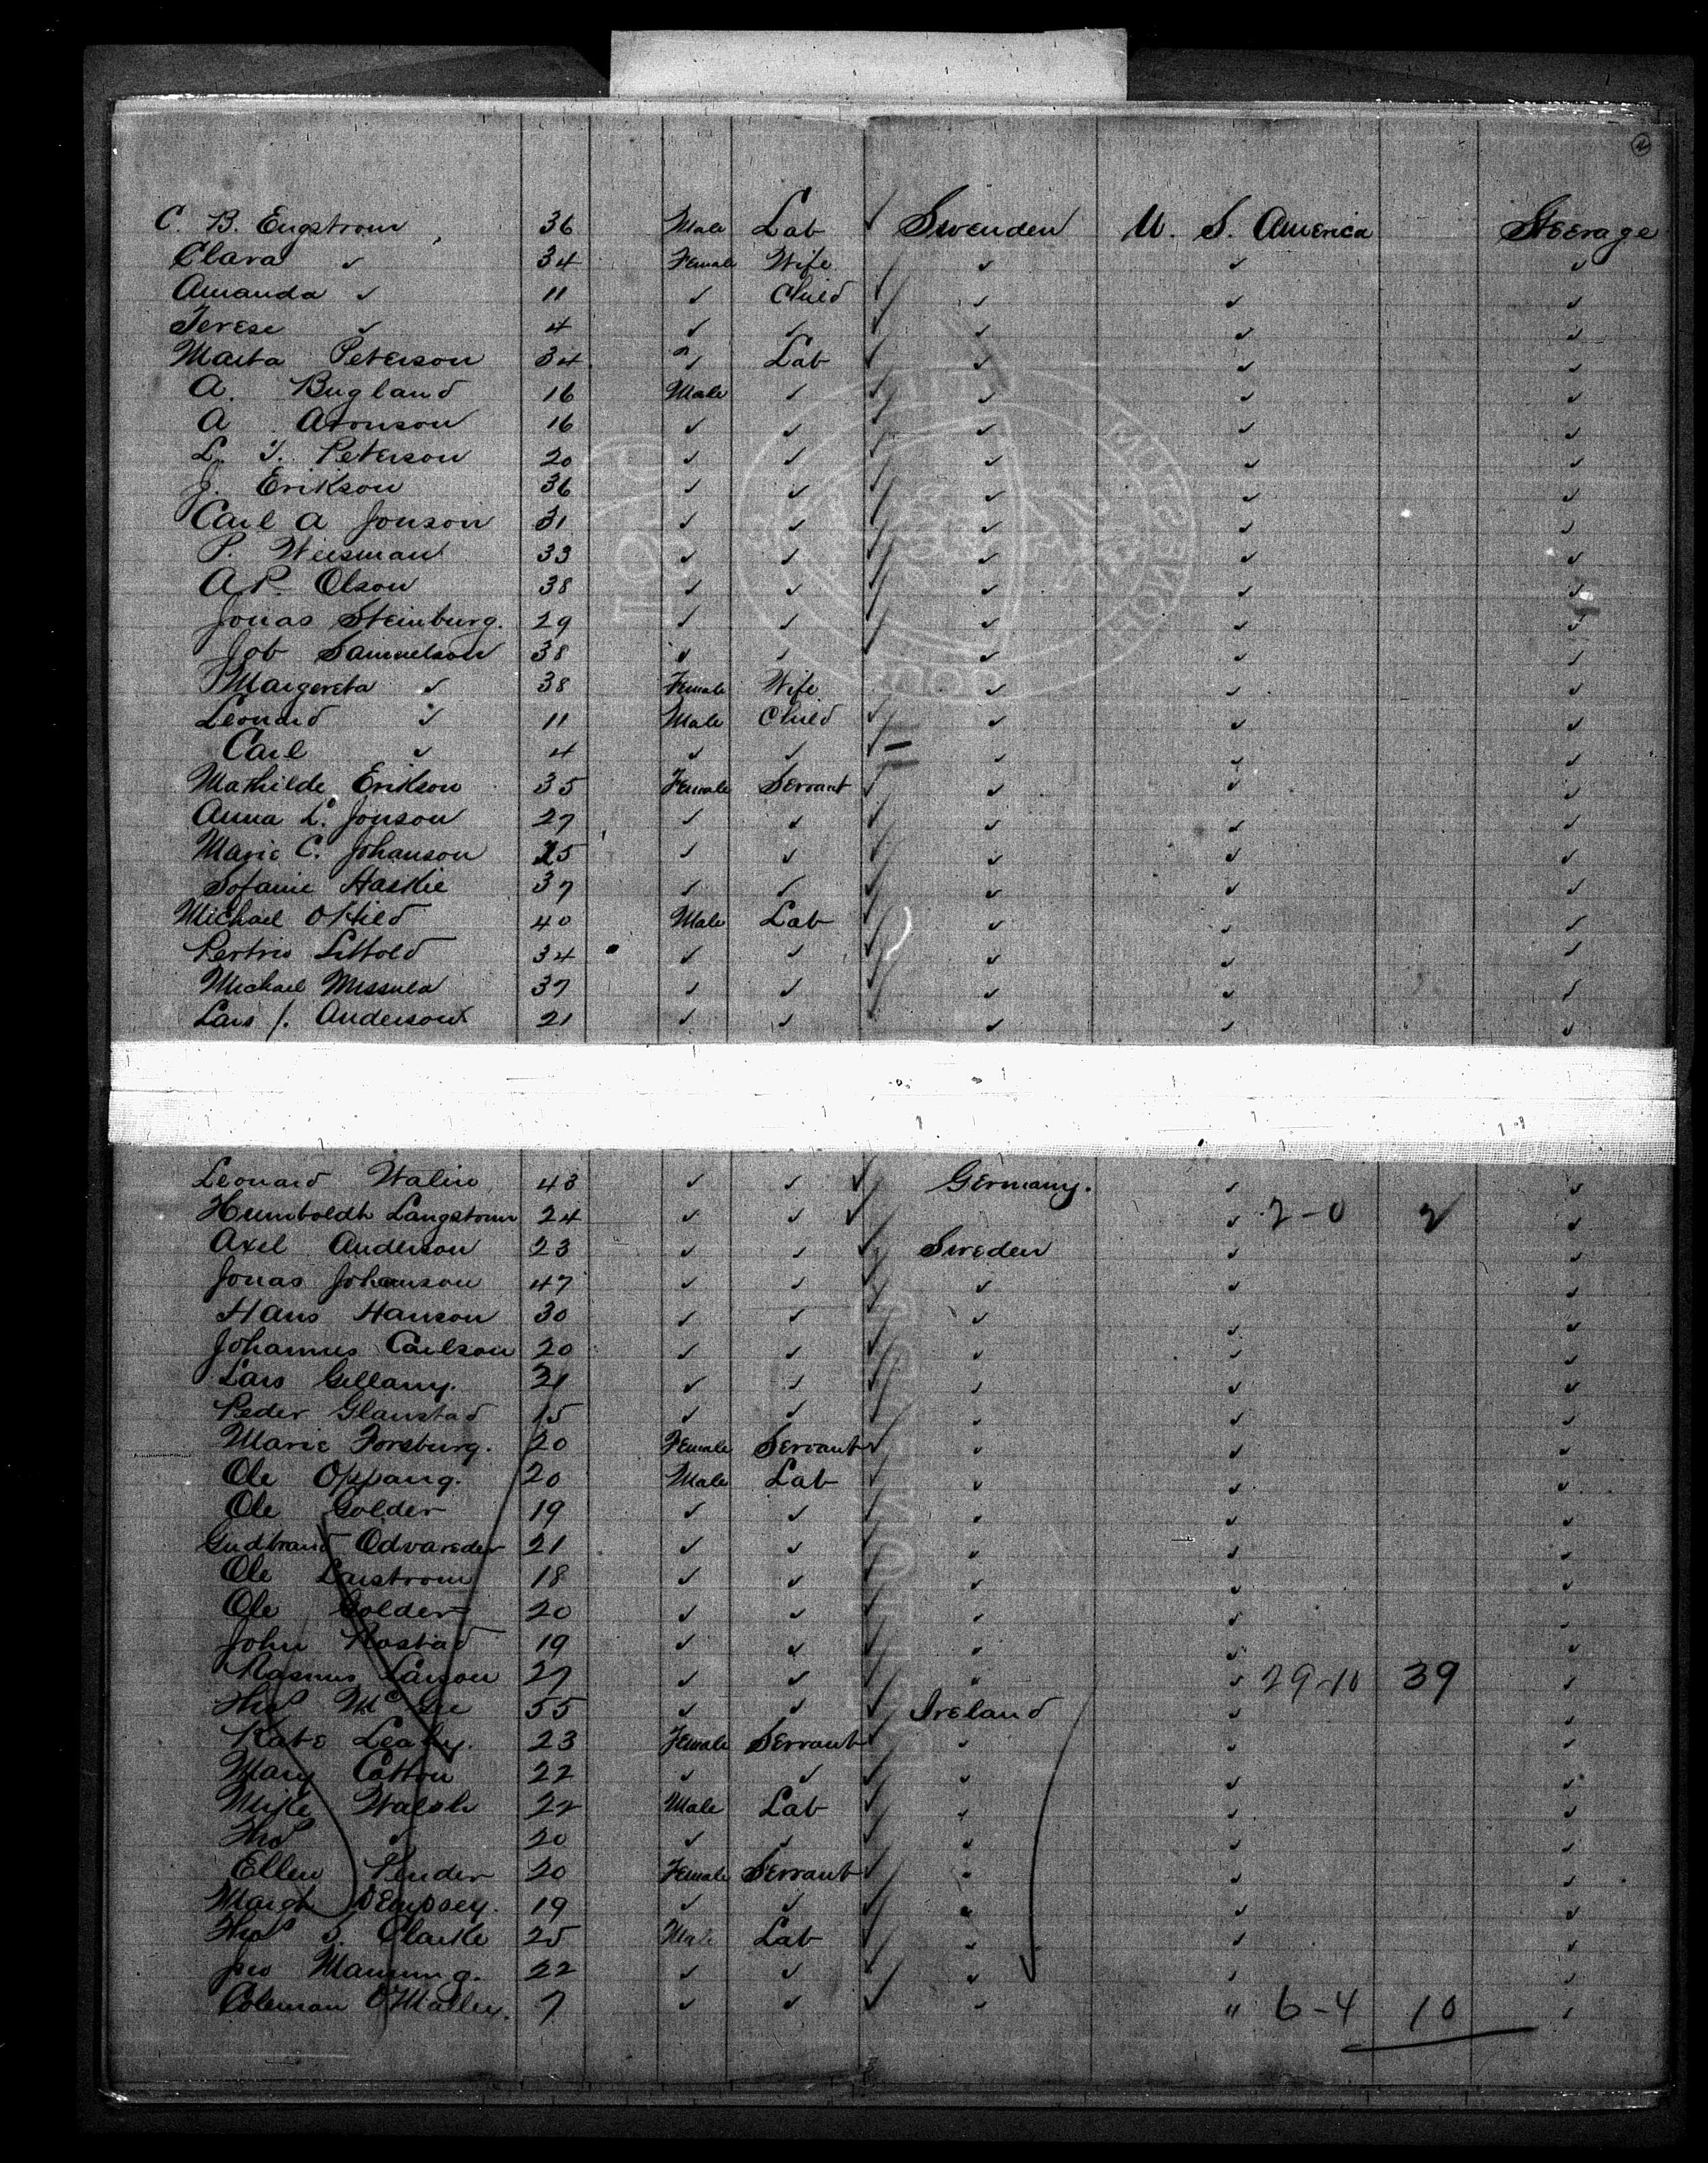 C. B. Engstrom 36 Male Lab ✓ Swenden U. S. America Steerage
Clara ✓ 34 Female Wife ✓ ✓ ✓
Amanda ✓ 11 ✓ Child ✓ ✓ ✓ ✓
Terese ✓ 4 ✓ ✓ ✓ ✓ ✓ ✓
Marta Peterson 34 ✓ Lab ✓ ✓ ✓ ✓
A. Bugland 16 Male ✓ ✓ ✓ ✓ ✓
A Aronson 16 ✓ ✓ ✓ ✓ ✓ ✓
L. J. Peterson 20 ✓ ✓ ✓ ✓ ✓ ✓
J. Erikson 36 ✓ ✓ ✓ ✓ ✓ ✓
Carl A Jonson 31 ✓ ✓ ✓ ✓ ✓ ✓
P. Wiesman 33 ✓ ✓ ✓ ✓ ✓ ✓
A. P. Olson 38 ✓ ✓ ✓ ✓ ✓ ✓
Jonas Steinburg. 29 ✓ ✓ ✓ ✓ ✓ ✓
Job Samuelson 38 ✓ ✓ ✓ ✓ ✓ ✓
Margereta ✓ 38 Female Wife ✓ ✓ ✓
Leonard ✓ 11 Male Child ✓ ✓ ✓ ✓
Carl ✓ 4 ✓ ✓ ✓ ✓ ✓ ✓
Mathilde Erikson 35 Female Servant ✓ ✓ ✓ ✓
Anna L. Jonson 27 ✓ ✓ ✓ ✓ ✓ ✓
Marie C. Johanson 25 ✓ ✓ ✓ ✓ ✓ ✓
Sofanie Haskie 37 ✓ ✓ ✓ ✓ ✓ ✓
Michael 40 Male Lab ✓ ✓ ✓ ✓
34 ✓ ✓ ✓ ✓ ✓ ✓
Michael 37 ✓ ✓ ✓ ✓ ✓ ✓
Lars J. Anderson 21 ✓ ✓ ✓ ✓ ✓ ✓
Leonard Walin 43 ✓ ✓ ✓ Germany. ✓ ✓
Humboldt Langstrom 24 ✓ ✓ ✓ ✓ 2-0 2 ✓
Axel Anderson 23 ✓ ✓ ✓ Sweden ✓ ✓
Jonas Johanson 47 ✓ ✓ ✓ ✓ ✓ ✓
Hans Hanson 30 ✓ ✓ ✓ ✓ ✓ ✓
Johannes Carlson 20 ✓ ✓ ✓ ✓ ✓ ✓
Lars Gellany. 21 ✓ ✓ ✓ ✓ ✓ ✓
Peder Glanstad 15 ✓ ✓ ✓ ✓ ✓ ✓
Marie Forsburg. 20 Female Servant ✓ ✓ ✓ ✓
Ole Oppang. 20 Male Lab ✓ ✓ ✓ ✓
Ole Golder 19 ✓ ✓ ✓ ✓ ✓ ✓
Gudbrand Odvareder 21 ✓ ✓ ✓ ✓ ✓ ✓
Ole Larstrom 18 ✓ ✓ ✓ ✓ ✓ ✓
Ole Golder 20 ✓ ✓ ✓ ✓ ✓ ✓
John Rostad 19 ✓ ✓ ✓ ✓ ✓ ✓
Rasmus Larson 27 ✓ ✓ ✓ " ✓ 29-10 39 ✓
Thos McGee 55 ✓ ✓ ✓ Ireland ✓ ✓
Kate Leahy. 23 Female Servant ✓ ✓ ✓ ✓
Mary Cotton 22 ✓ ✓ ✓ ✓ ✓ ✓
Mike Walsh 22 Male Lab ✓ ✓ ✓ ✓
Thos ✓ 20 ✓ ✓ ✓ ✓ ✓ ✓
Ellen Pender 20 Female Servant ✓ ✓ ✓ ✓
Margt Dempsey. 19 ✓ ✓ ✓ ✓ ✓ ✓
Thos S. Clarke 25 Male Lab ✓ ✓ ✓ ✓
Jno Manning. 22 ✓ ✓ ✓ ✓ ✓ ✓
Coleman O'Malley. 7 ✓ ✓ ✓ ✓ " 6-4 10 ✓